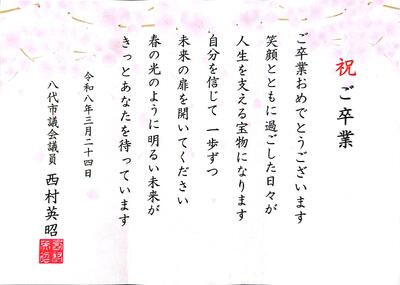 祝 ご卒業
ご卒業おめでとうございます
笑顔とともに過ごした日々が
人生を支える宝物になります
自分を信じて 一歩ずつ
未来の扉を開いてください
春の光のように明るい未来が
きっとあなたを待っています
令和八年三月二十四日
八代市議会議員 西村英昭